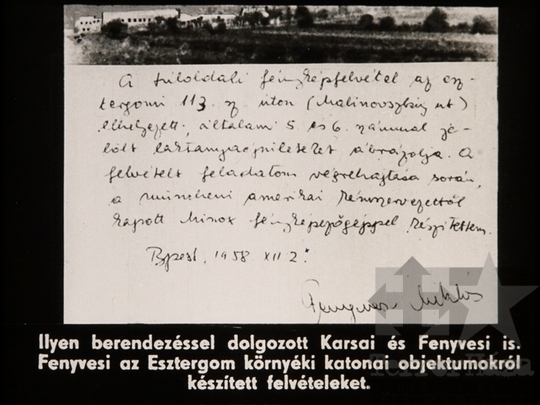 A túloldali fényképfelvétel az esz-
tergomi 113 sz. úton (Malinovszkij út)
elhelyezett, általam 5 és 6. számmal je-
lölt laktanyaépületeket ábrázolja. A
felvételt feladatom végrehajtása során,
a müncheni amerikai kémszervezettől
kapott Minox fényképezőgéppel készítettem.
Bpest, 1958 XII 2.
Fenyvesi Miklós
Ilyen berendezéssel dolgozott Karsai és Fenyvesi is.
Fenyvesi az Esztergom környéki katonai objektumokról
készített felvételeket.
Terror Háza